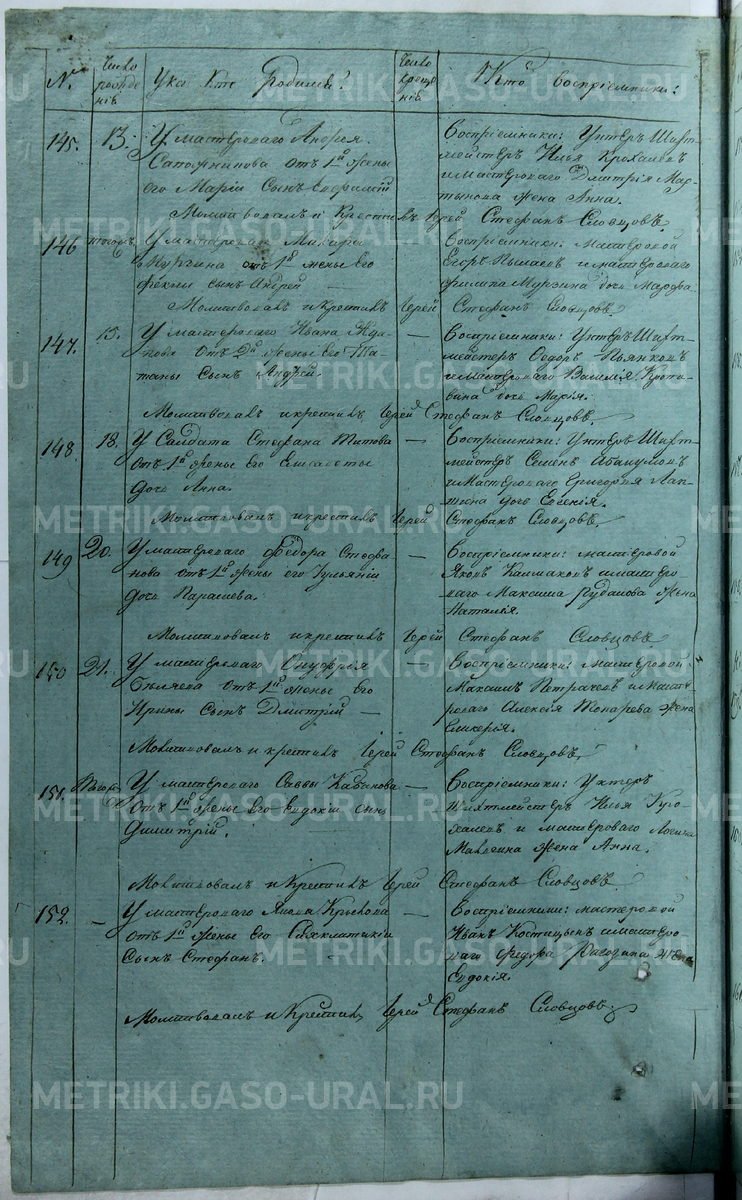 № Число рожденія У кого кто родился? Число крещенія Кто воспріемники?
145. 13. У мастероваго Андрея
Сапожникова отъ 1й жены
его Маріи сынъ
Воспріемники: Унтеръ Шахт-
мейстеръ Илья Крохалевъ
и мастероваго Дмитрія Мар-
тынова жена Анна.
Молитвовалъ и крестилъ Іерей Стефанъ Словцовъ.
146 У мастероваго
отъ 1й жены его
Феклы сынъ Андрей —
Воспріемники: мастеровой
Егоръ и мастероваго
Филипа дочь Марфа.
Молитвовалъ и крестилъ Іерей Стефанъ Словцовъ.
147. 15. У мастероваго Ивана Жда-
нова отъ 2й жены его Та-
тіаны сынъ Андрей.
Воспріемники: Унтеръ Шахт-
мейстеръ Ѳедоръ Пьянковъ
и мастероваго Василія
дочь Марія.
Молитвовалъ и крестилъ Іерей Стефанъ Словцовъ.
148. 18. У Салдата Стефана Титова —
отъ 1й жены его Елисаветы
дочь Анна.
Воспріемники: Унтеръ Шахт-
мейстеръ Семенъ Абакумовъ
и мастероваго Григорія Лап-
тина дочь Евгенія.
Молитвовалъ и крестилъ Іерей Стефанъ Словцовъ.
149 20. У мастероваго Федора Стефа- —
нова отъ 1й жены его Іульяніи
дочь Параскева.
Воспріемники: мастеровой
Яковъ Калмаковъ и мастеро-
ваго Максима жена
Наталія.
Молитвовалъ и крестилъ Іерей Стефанъ Словцовъ
150 21. У мастероваго Онуфрія —
Беляева отъ 1й жены его
Ирины сынъ Дмитрій —
Воспріемники: мастеровой
Максимъ Петрачевъ и масте-
роваго Алексія Токарева жена
Гликерія.
Молитвовалъ и крестилъ Іерей Стефанъ Словцовъ.
151. У мастероваго Саввы Кабакова —
отъ 1й жены его Евдокіи сынъ
Димитрій.
Воспріемники: Унтеръ
Шихтмейстеръ Илья Кро-
халевъ и мастероваго
жена Анна.
Молитвовалъ и Крестилъ Іерей Стефанъ Словцовъ
152. — У мастероваго Якова —
отъ 1й жены его
Сынъ Стефанъ.
Воспріемники: мастеровой
Иванъ и мастеро-
ваго Федора Рагозина жена
Евдокія.
Молитвовалъ и Крестилъ Іерей Стефанъ Словцовъ.
METRIKI.GASO-URAL.RU